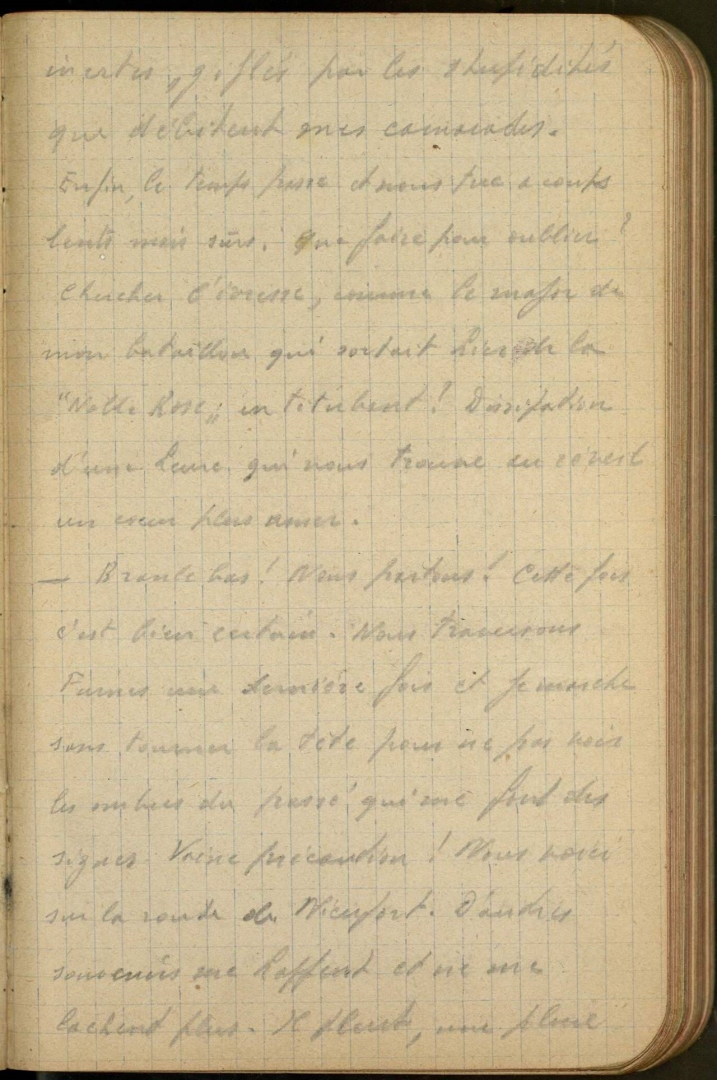 inertes, giflés par les stupidités
que débitent mes camarades.
Enfin, le temps passe et nous tue a coups
lents mais sûrs. Que faire pour oublier ?
Chercher l'ivresse, comme le major de
mon bataillon qui sortait hier de la
"Noble Rose" en titubant ! Dissipation
d'une heure qui nous trouve au réveil
un cœur plus amer.
— Branle bas ! Nous partons ! Cette fois
c'est bien certain. Nous traversons
Furnes une dernière fois et je marche
sans tourner la tête pour ne pas voir
les ombres du passé qui me font des
signes. Vaine précaution ! Nous voici
sur la route de Nieuport. D'autres
souvenirs me happent et ne me
lachent plus. Il pleut, une pluie